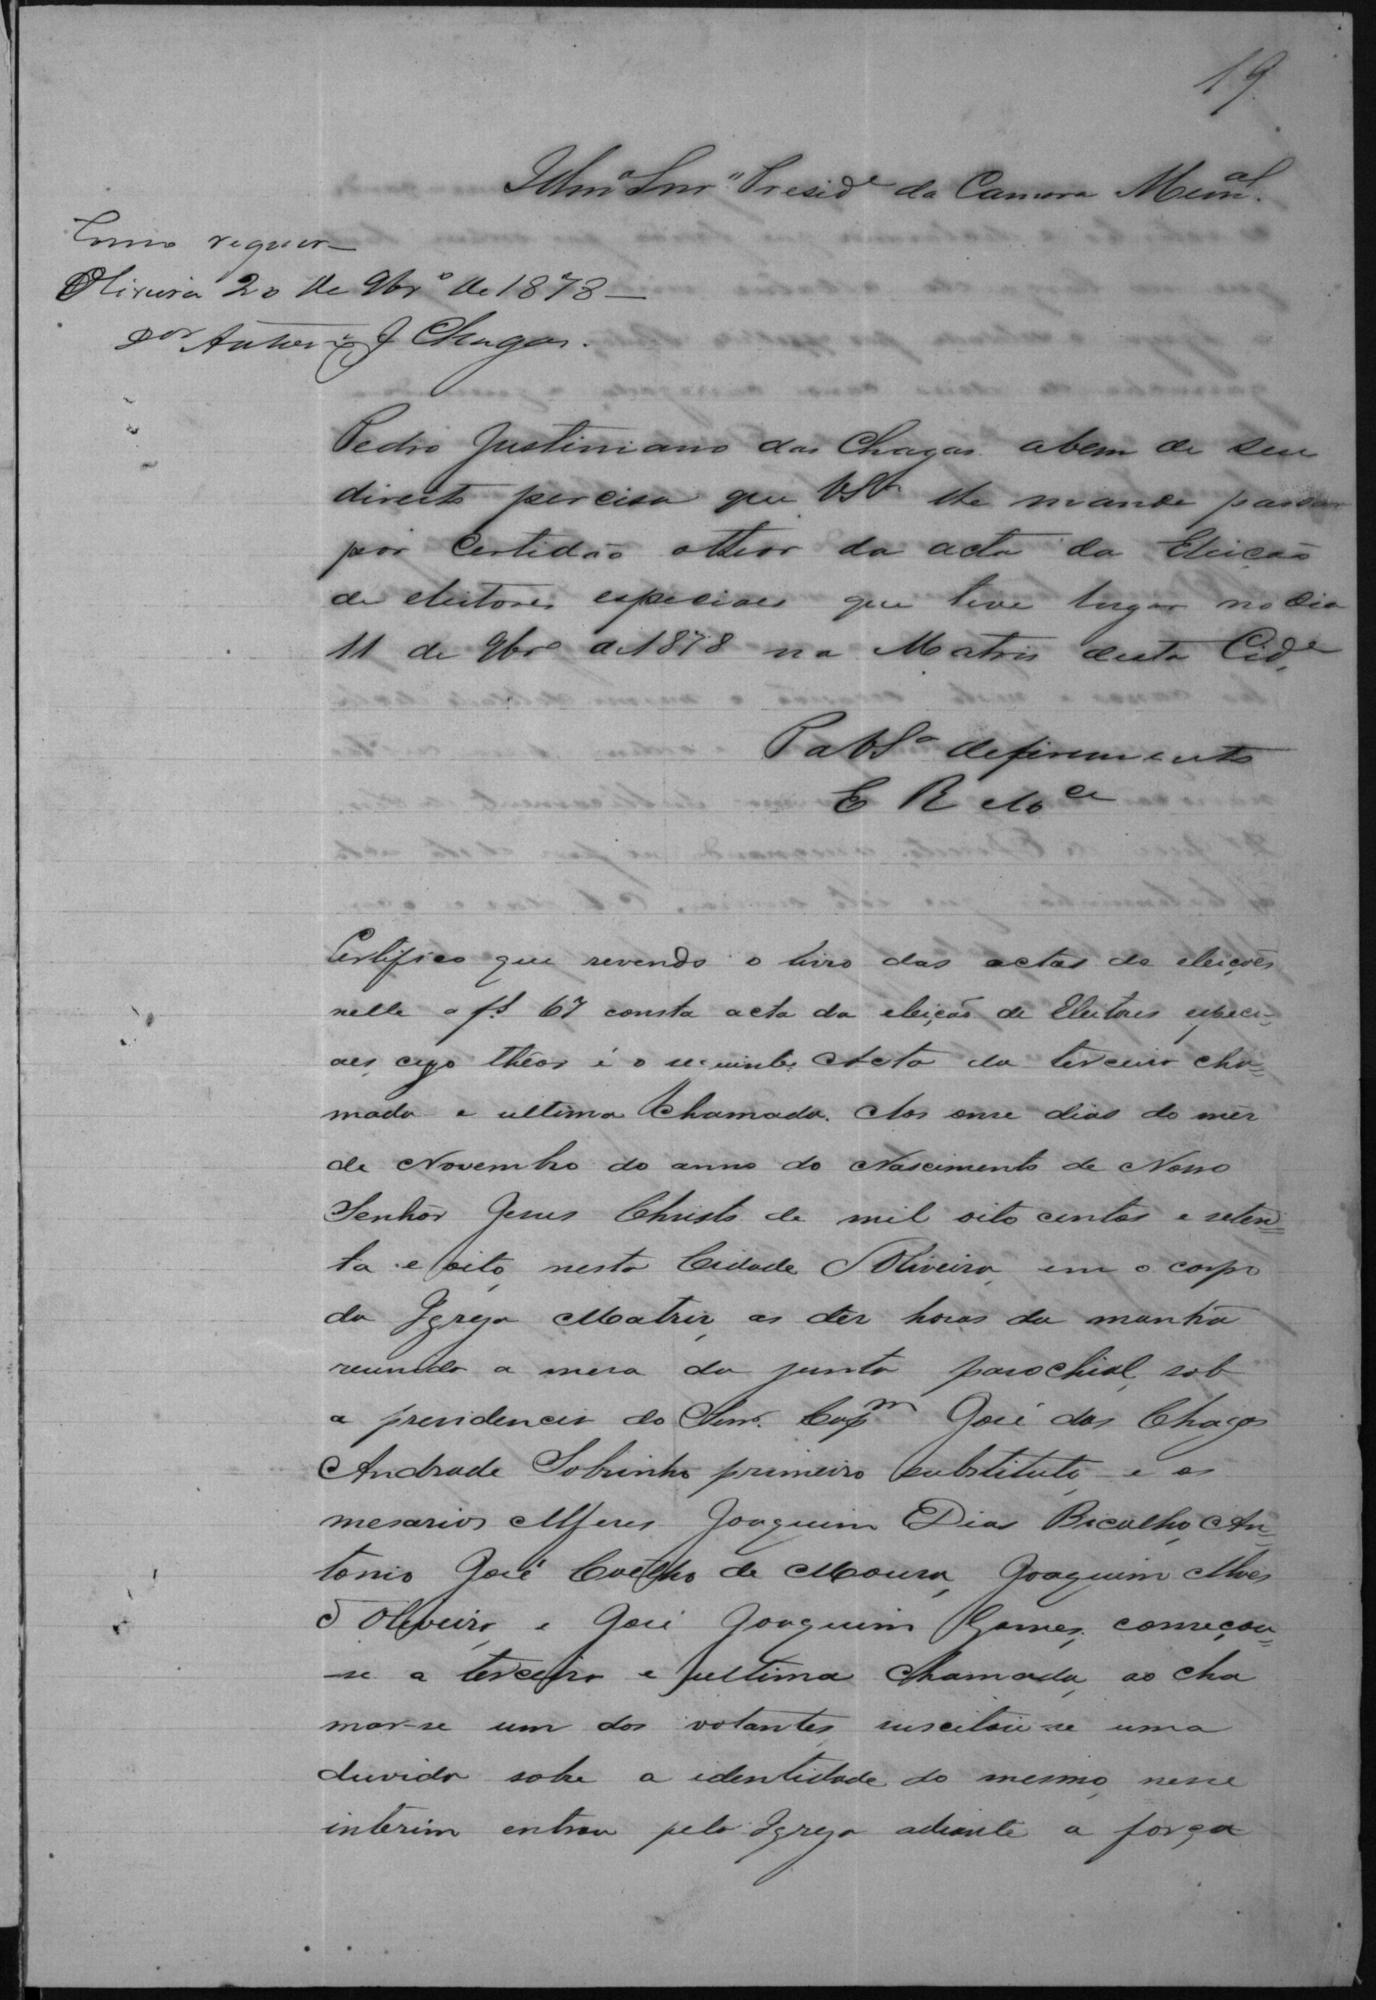 19
Illmo Snr Preside da Camara Mcnal.
Como requer—
Oliveira 20 de 9bro de 1878—
Chagas.
Pedro Justiniano das Chagas abem de seu
direito percisa que VSa lhe mande passar
por Certidão otheor da acta da Eleição
de eleitores especiaes que teve lugar no dia
11 de 9bro de 1878 na Matris desta Cide
P a VSa deferimento
E R Mce
Certifico que revendo o livro das actas de eleições
nelle a fs 67 consta acta da eleição de Eleitores especi=
aes, cujo thêor é o seguinte. Acta da terceira cha=
mada e ultima Chamada. Aos onse dias do mêz
de Novembro do anno do Nascimento de Nosso
Senhôr Jesus Christo de mil oito centos e seten=
ta e oito, nesta Cidade d'Oliveira, em o corpo
da Igreja Matriz, as dez horas da manhã
reunida a mesa da junta parochial, sob
a presidencia do Snr. Capm José das Chagas
Andrade Sobrinho primeiro substituto, e os
mesarios Alferes Joaquim Dias Bicalho, An=
tonio José Coêlho de Moura, Joaquim Alves
d'Oliveira, e José Joaquim Gomes, começou=
-se a terceira e ultima chamada, ao cha
mar-se um dos votantes, suscitou-se uma
duvida sobre a identidade do mesmo, nesse
interim entrou pela Igreja adiante a força